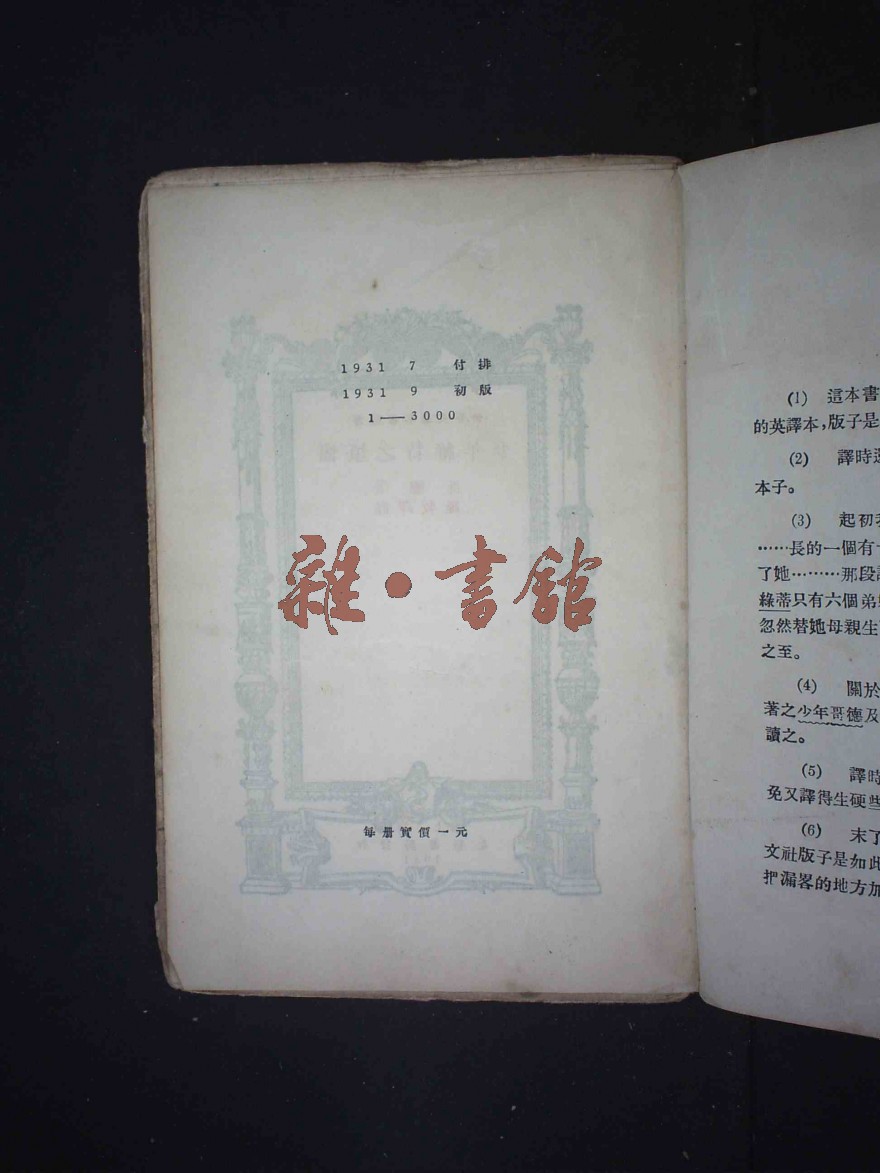 1931 7 付排
1931 9 初版
1——3000
雜·書館
每册實價一元
(1) 這本書
的英譯本,版子是
(2) 譯時還
本子。
(3) 起初我
……長的一個有十
了她………那段
綠蒂只有六個弟
忽然替她母親生
之至。
(4) 關於
著之少年哥德及
讀之。
(5) 譯時
免又譯得生硬些
(6) 末了
文社版子是如此
把漏畧的地方加